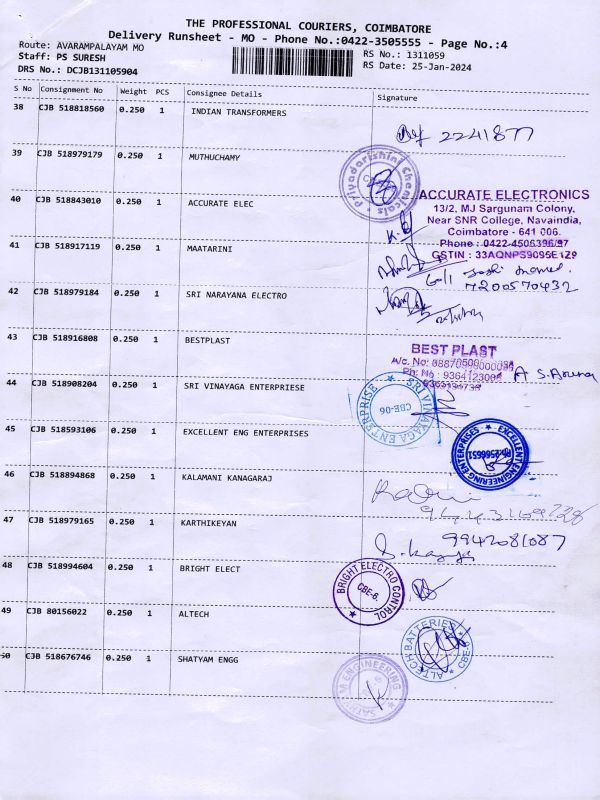 THE PROFESSIONAL COURIERS, COIMBATORE
Delivery Runsheet - MO - Phone No.:0422-3505555 - Page No.:4
Route: AVARAMPALAYAM MO
RS No.: 1311059
Staff: PS SURESH
RS Date: 25-Jan-2024
DRS No.: DCJB131105904
S No Consignment No Weight PCS Consignee Details Signature
38 CJB 518818560 0.250 1 INDIAN TRANSFORMERS
2241877
39 CJB 518979179 0.250 1 MUTHUCHAMY
Priyadarishini Chemicals
40 CJB 518843010 0.250 1 ACCURATE ELEC
ACCURATE ELECTRONICS
13/2, MJ Sargunam Colony,
Near SNR College, Navaindia,
Coimbatore - 641 006.
Phone : 0422-4506396/97
GSTIN : 33AQNPS9095E1Z9
41 CJB 518917119 0.250 1 MAATARINI
7200570432
42 CJB 518979184 0.250 1 SRI NARAYANA ELECTRO
43 CJB 518916808 0.250 1 BESTPLAST
BEST PLAST
A/c. No:
Ph. No : 9364123008
A S.Aruna
44 CJB 518908204 0.250 1 SRI VINAYAGA ENTERPRIESE
SRI VINAYAGA ENTERPRISE
CBE-06
45 CJB 518593106 0.250 1 EXCELLENT ENG ENTERPRISES
EXCELLENT ENGINEERING ENTERPRISES
Ph:2566651
46 CJB 518894868 0.250 1 KALAMANI KANAGARAJ
47 CJB 518979165 0.250 1 KARTHIKEYAN
9942081087
48 CJB 518994604 0.250 1 BRIGHT ELECT
BRIGHT ELECTRO CONTROL
CBE-6.
49 CJB 80156022 0.250 1 ALTECH
ALTECH BATTERIES
CBE
50 CJB 518676746 0.250 1 SHATYAM ENGG
ENGINEERING